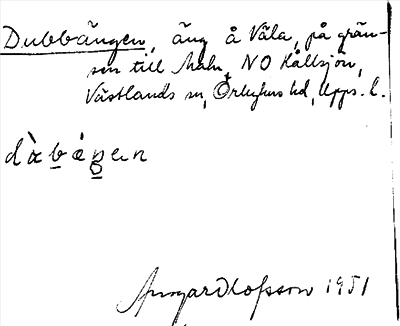 Dubbängen, äng å Våla, på grän-
sen till Mehn, NO Hållsjön,
Västlands sn, Örbyhus hd, Upps. l.
dὰbἑŋen
Ingar Olofsson 1951